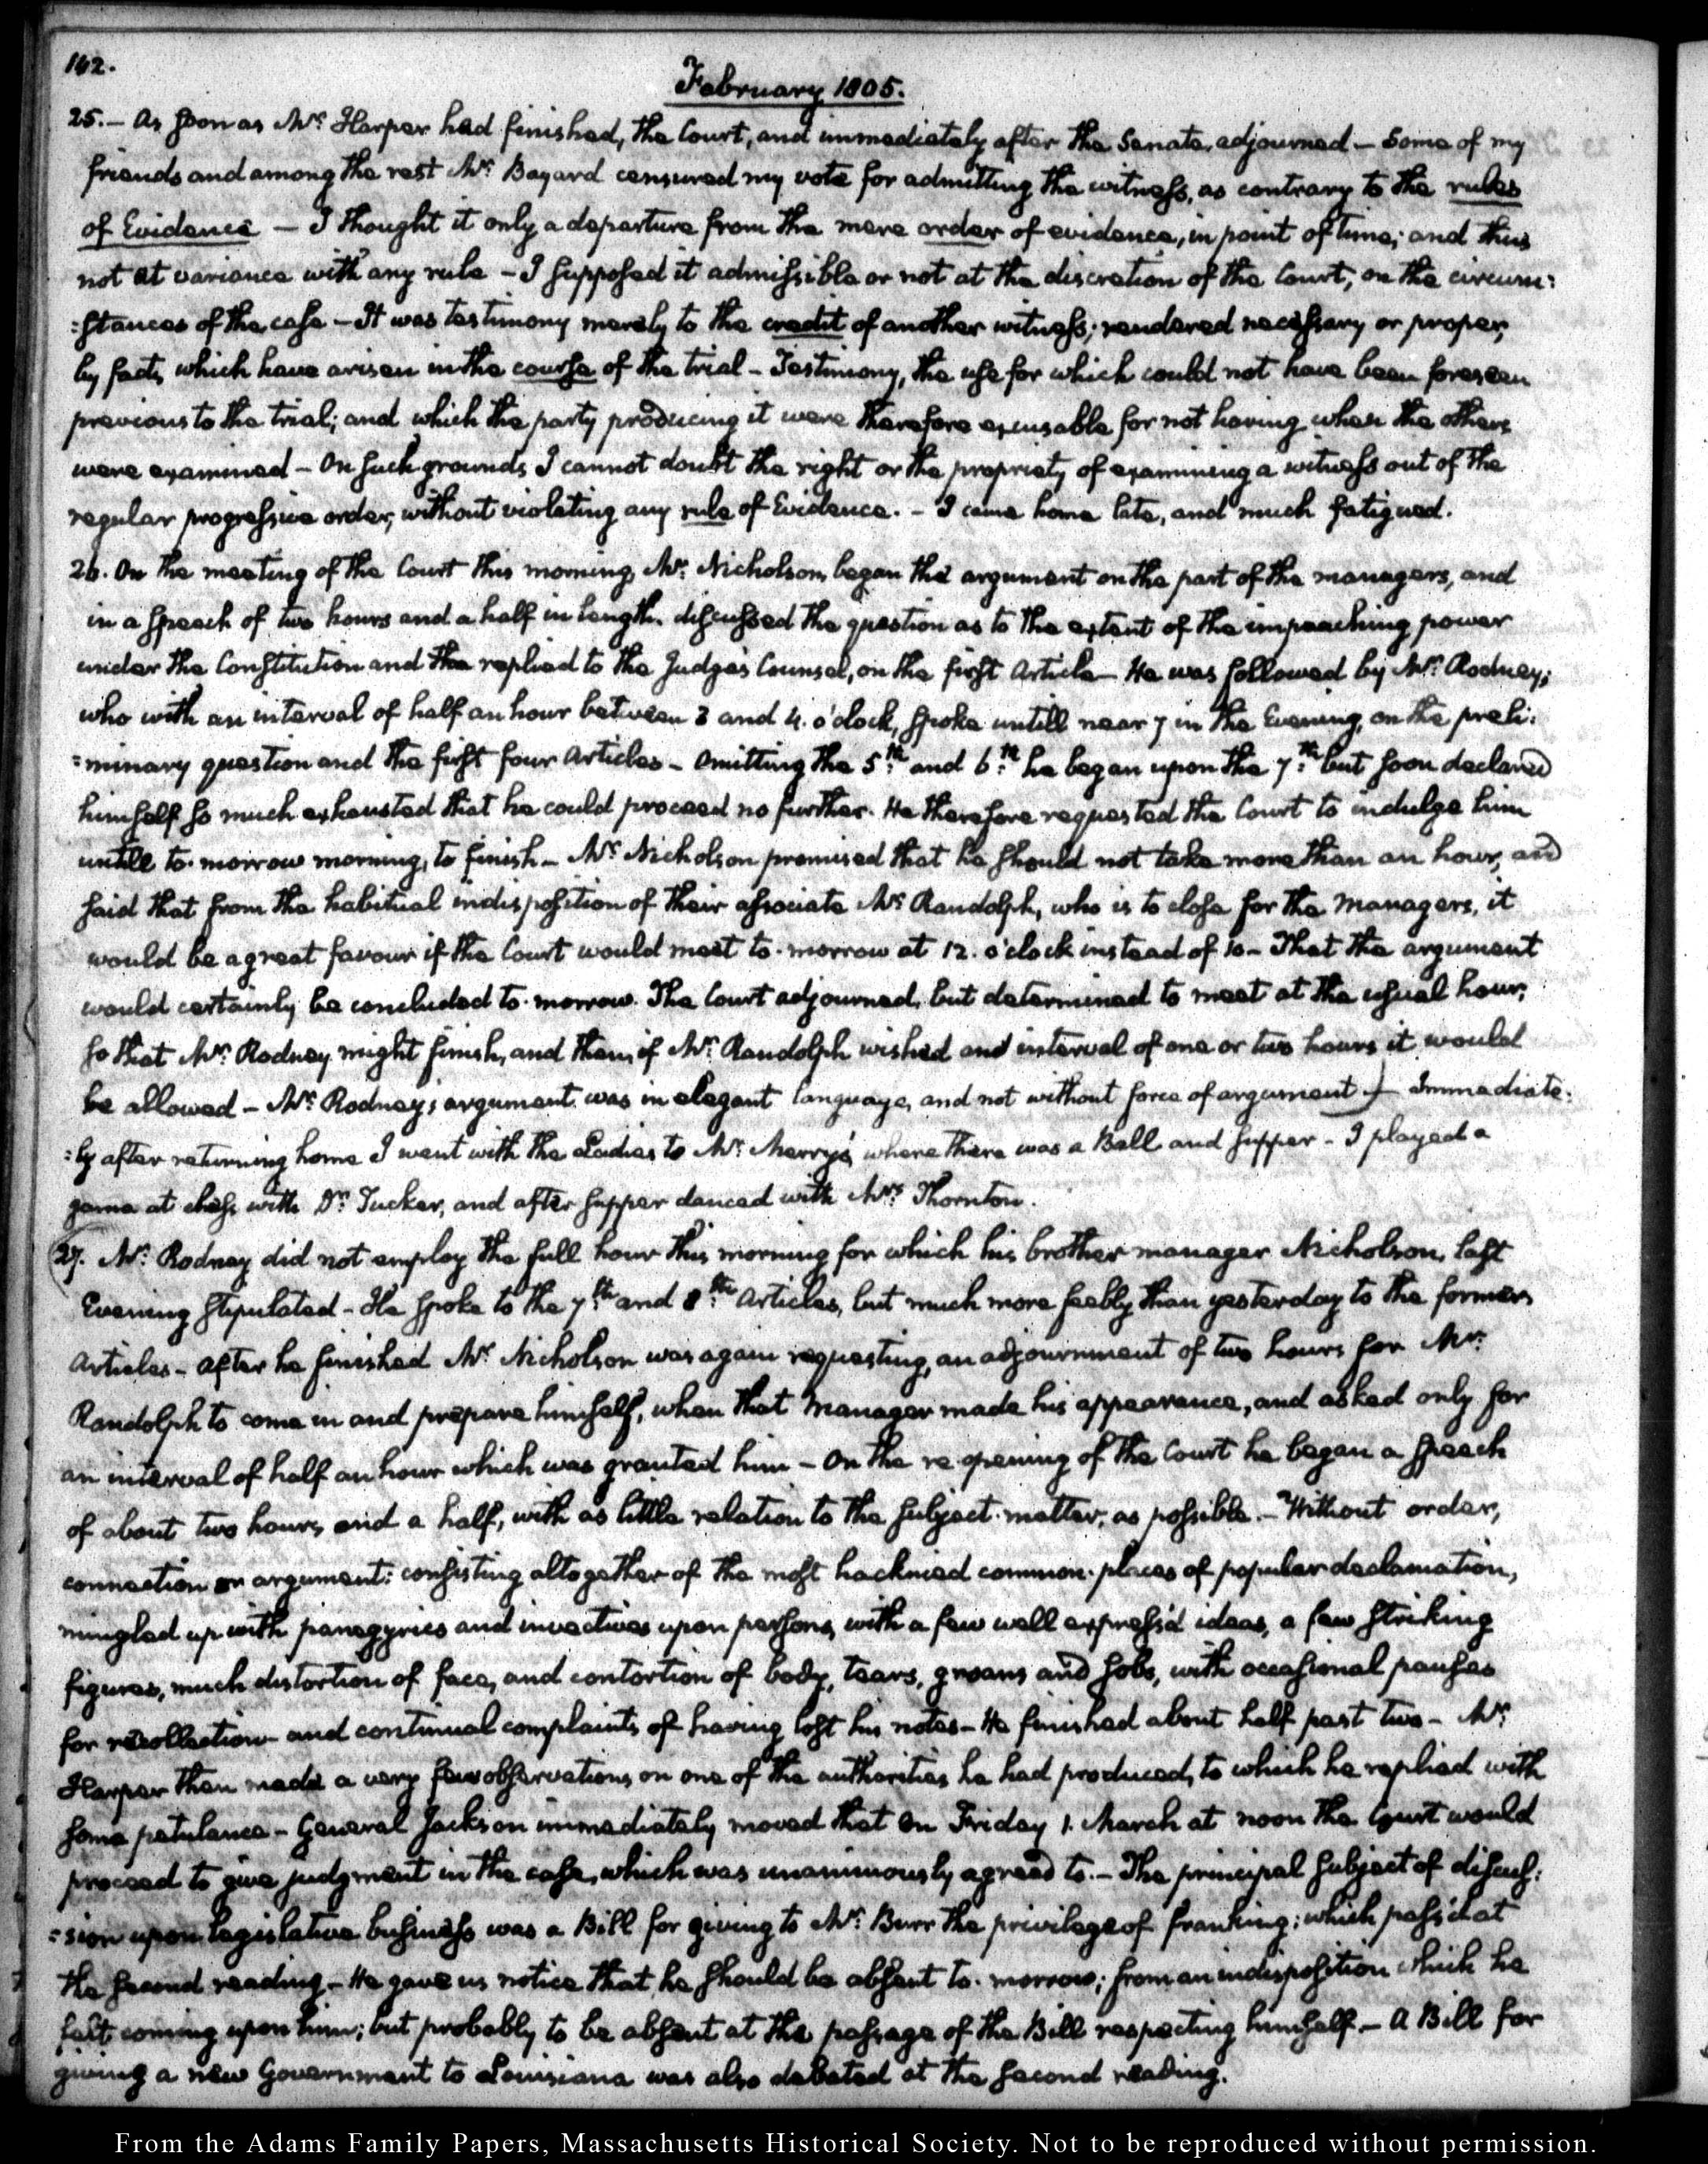 162.
February 1805.
25.- As soon as Mr. Harper had finished, the Court, and immediately after the Senate, adjourned - Some of my
friends and among the rest Mr. Bayard censured my vote for admitting the witness, as contrary to the rules
of Evidence - I thought it only a departure from the mere order of evidence, in point of time; and thus
not at variance with any rule - I supposed it admissible or not at the discretion of the Court, on the circum:
:stances of the case - It was testimony merely to the credit of another witness; rendered necessary or proper,
by facts, which have arisen in the course of the trial - Testimony, the use for which could not have been foreseen
previous to the trial; and which the party producing it were therefore excusable for not having when the others
were examined - On such grounds I cannot doubt the right or the propriety of examining a witness out of the
regular progressive order, without violating any rule of Evidence. - I came home late, and much fatigued.
26. On the meeting of the Court this morning, Mr. Nicholson, began the argument on the part of the managers, and
in a speech of two hours and a half in length, discussed the question as to the extent of the impeaching power
under the Constitution and the replied to the Judge's Counsel, on the first Article - He was followed by Mr. Rodney;
who with an interval of half an hour between 3 and 4. o'clock, spoke untill near 7 in the Evening, on the preli:
:minary question and the first four Articles - Omitting the 5th. and 6th. he began upon the 7th. but soon declared
himself so much exhausted that he could proceed no further. He therefore requested the Court to indulge him
untill to-morrow morning, to finish - Mr. Nicholson promised that he should not take more than an hour, and
said that from the habitual indisposition of their associate Mr. Randolph, who is to close for the Managers, it
would be a great favour if the Court would meet to-morrow at 12. o'clock instead of 10 - That the argument
would certainly be concluded to-morrow. The Court adjourned, but determined to meet at the usual hour;
so that Mr. Rodney might finish, and then, if Mr. Randolph wished and interval of one or two hours it would
be allowed - Mr. Rodney's argument was in elegant language, and not without force of argument - Immediate:
:ly after returning home I went with the Ladies to Mr. Merry's where there was a Ball and supper - I played a
game at chess with Dr. Tucker, and after supper danced with Mrs. Thornton.
27. Mr. Rodney did not employ the full hour this morning for which his brother manager Nicholson, last
Evening stipulated - He spoke to the 7th. and 8th. Articles, but much more feebly than yesterday to the former
Articles - After he finished Mr. Nicholson was again requesting, an adjournment of two hours for Mr.
Randolph to come in and prepare himself, when that Manager made his appearance, and asked only for
an interval of half an hour which was granted him - On the re opening of the Court he began a speech
of about two hours and a half, with as little relation to the subject-matter, as possible. - Without order,
connection or argument: consisting altogether of the most hacknied common-places of popular declamation,
mingled up with panegyrics and invectives upon persons, with a few well express'd ideas, a few striking
figures, much distortion of face, and contortion of body, tears, groans and sobs, with occasional pauses
for recollection and continual complaints of having lost his notes - He finished about half past two - Mr.
Harper then made a very few observations on one of the authorities he had produced, to which he replied with
some petulance - General Jackson immediately moved that on Friday 1. March at noon the Court would
proceed to give judgment in the case, which was unanimously agreed to. - The principal subject of discus:
:sion upon legislative business was a Bill for giving to Mr. Burr the privilege of franking; which pass'd at
the second reading - He gave us notice that he should be absent to-morrow; from an indisposition which he
felt coming upon him; but probably to be absent at the passage of the Bill respecting himself. - A Bill for
giving a new Government to Louisiana was also debated at the second reading.
From the Adams Family Papers, Massachusetts Historical Society. Not to be reproduced without permission.